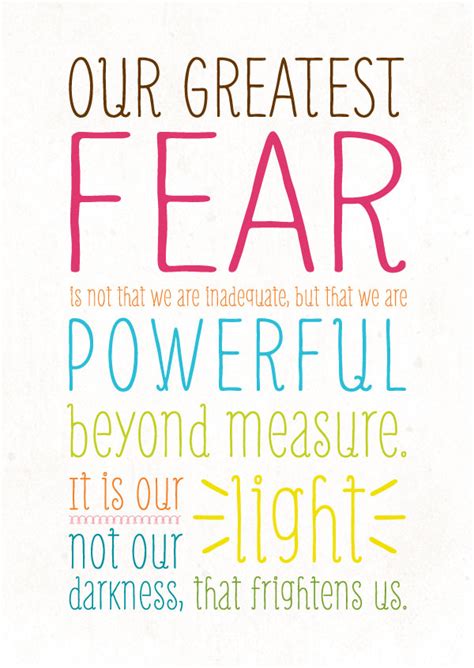 OUR GREATEST
FEAR
is not that we are inadequate, but that we are
POWERFUL
beyond measure.
It is our light
not our
darkness, that frightens us.